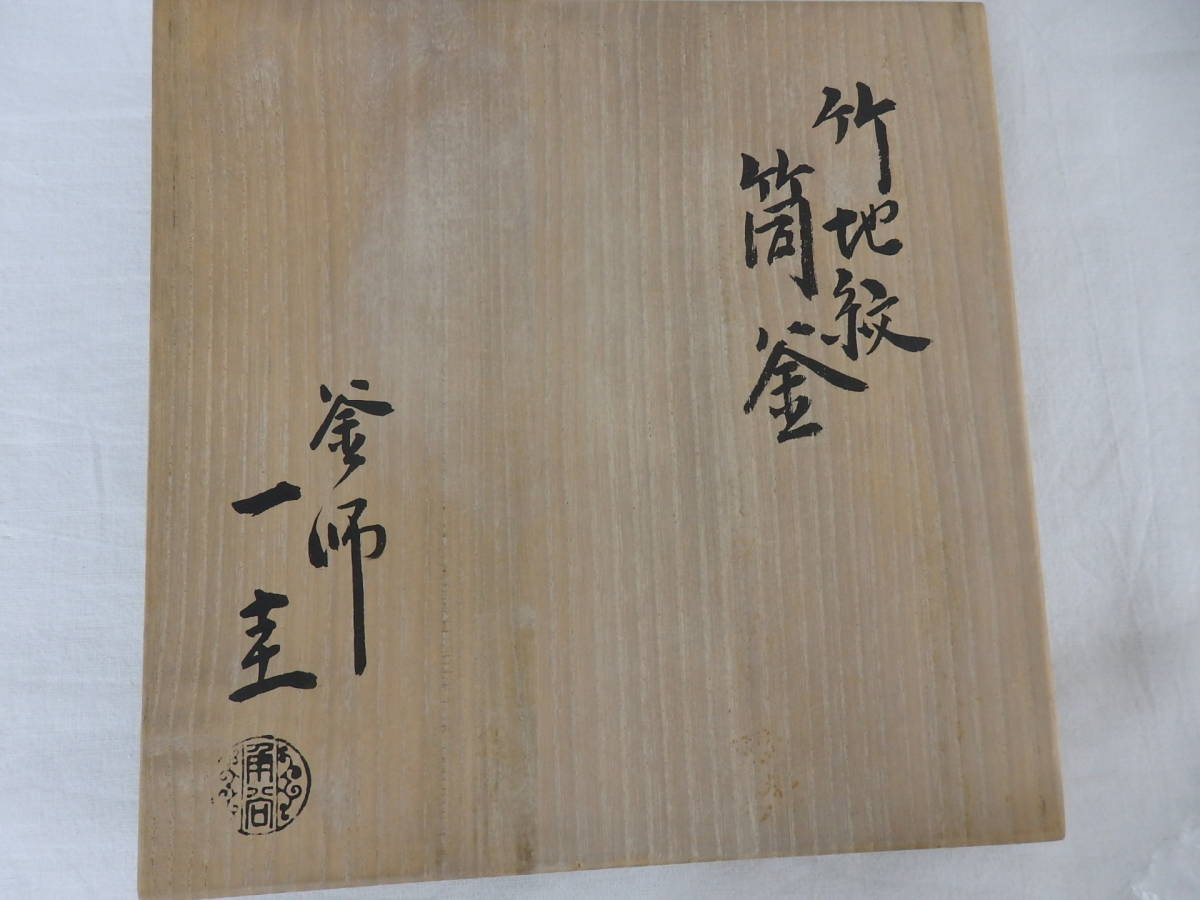 竹地紋
筒釜
釜師
一圭
角谷